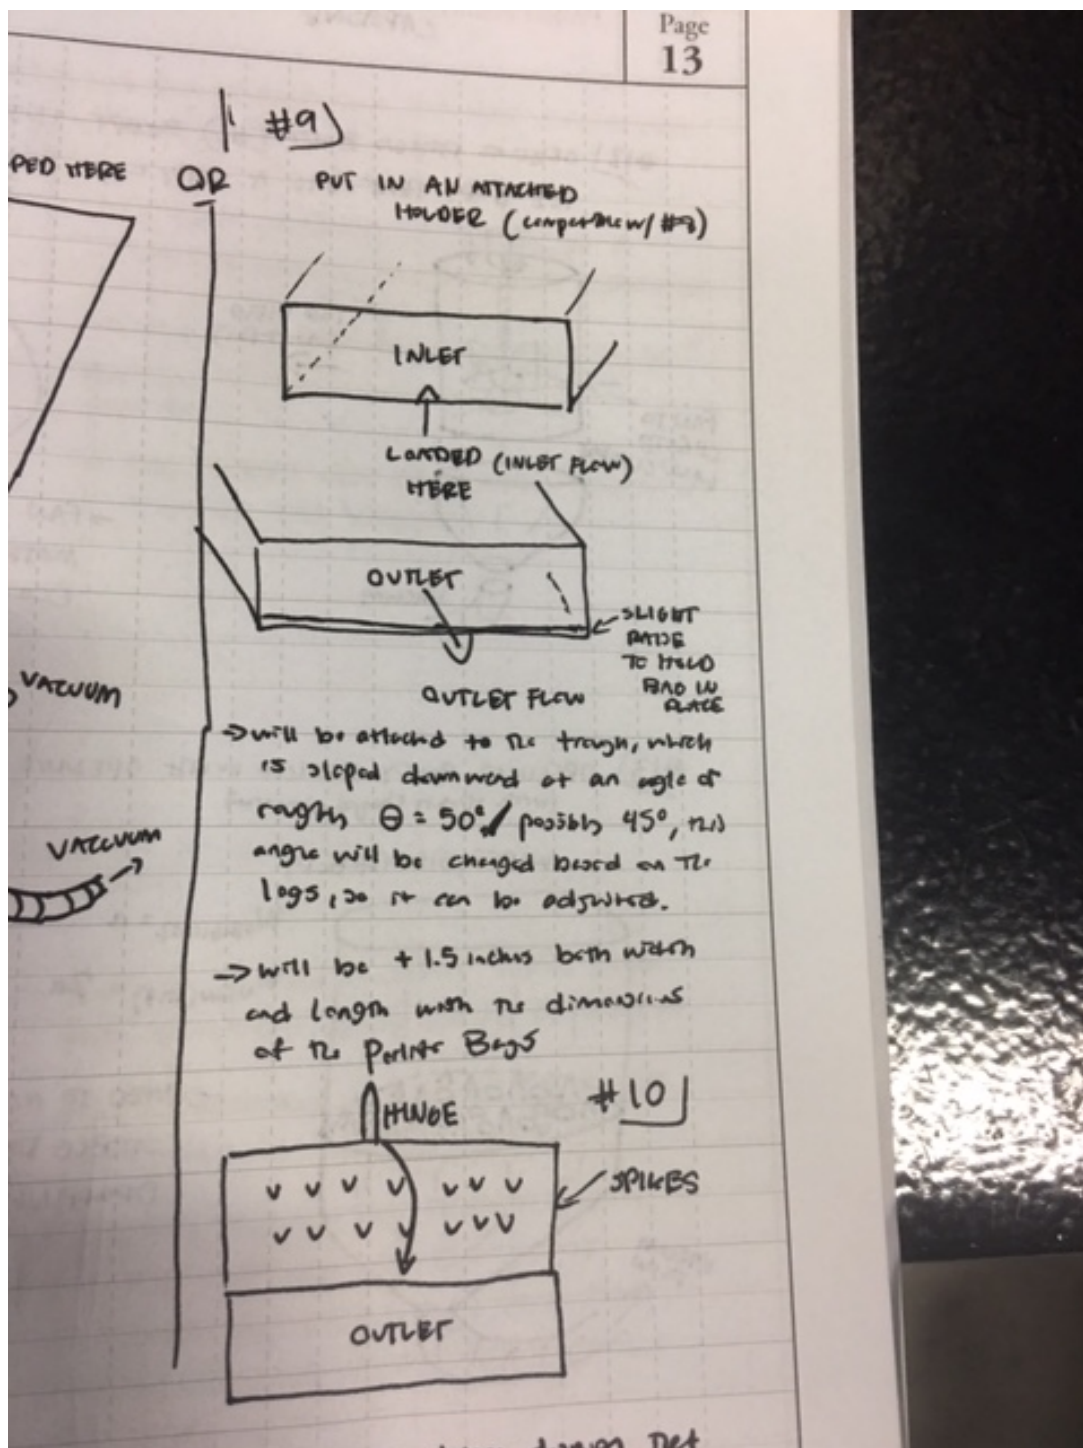 Page
13
#9
PED HERE OR PUT IN AN ATTACHED
HOLDER (compatible w/ #8)
INLET
LOADED (INLET FLOW)
HERE
OUTLET
SLIGHT
TO HOLD
IN
PLACE
OUTLET FLOW
VACUUM
→ will be attached to the trough, which
is sloped downward at an angle of
roughly θ = 50° / possibly 45°, this
angle will be changed based on the
legs, so it can be adjusted.
VACUUM
→ will be + 1.5 inches both width
and length with the dimensions
of the Perlite Bags
#10
HINGE
SPIKES
OUTLET